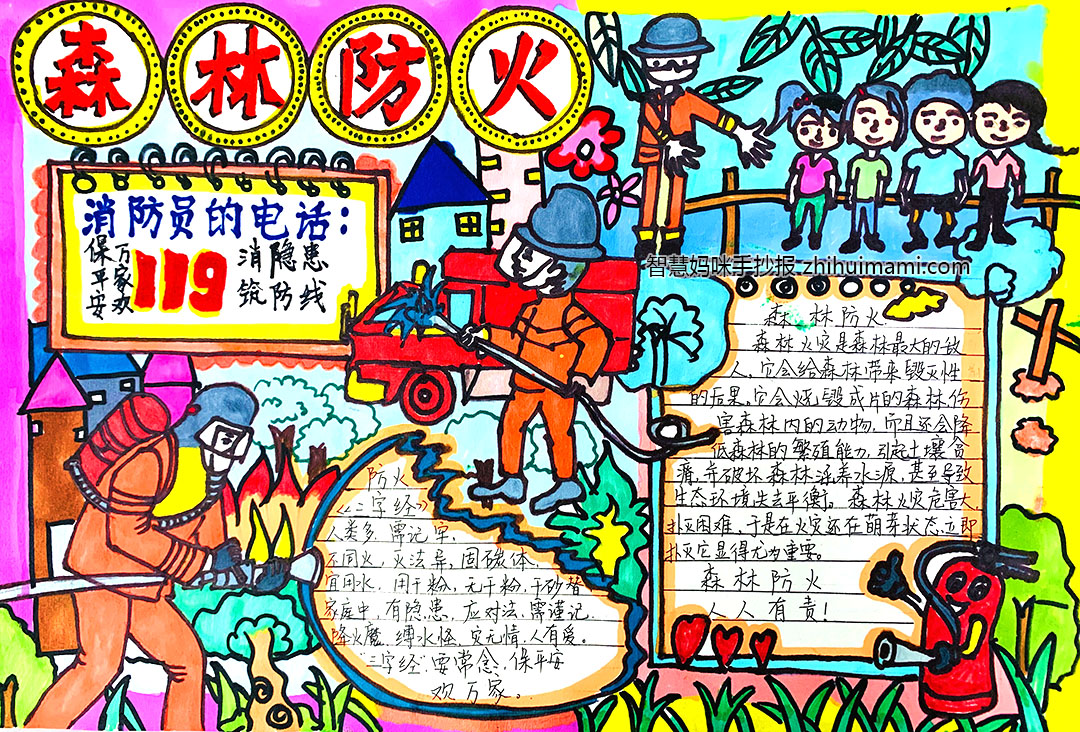 森林防火
消防员的电话：
保平安
万家欢
119
消隐患
筑防线
智慧妈咪手抄报 zhihuimami.com
森林防火
森林火灾是森林最大的敌
人，它会给森林带来毁灭性
的后果，它会烧毁成片的森林伤
害森林内的动物，而且还会降
低森林的繁殖能力，引起土壤贫
瘠，并破坏森林涵养水源，甚至导致
生态环境失去平衡。森林火灾危害大，
扑灭困难，于是在火灾还在萌芽状态立即
扑灭它显得尤为重要。
森林防火
人人有责！
防火
《三字经》
人类多，需记牢，
不同火，灭法异，固碳体
宜用水，用干粉，无干粉，干砂替
家庭中，有隐患，应对法，需谨记，
降火魔，缚水怪，灾无情，人有爱。
“三字经”，要常念，保平安
欢万家。